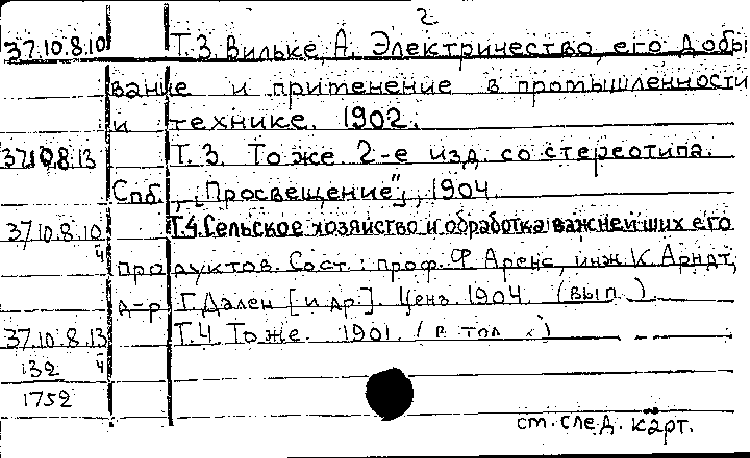 2
37.10.8.10 Т.3. Вильке, А. Электричество, его добы
вание и применение в промышленности
и технике. 1902.
37.10.8.13 Т.3. То же. 2-е изд. со стереотипа.
Спб., „Просвещение", 1904.
37.10.8.10 Т.4. Сельское хозяйство и обработка важнейших его
4 продуктов. Сост.: проф. Ф. Аренс, инж. К. Арндт,
д-р Г. Дален [и др.]. Ценз. 1904. (вып.)
37.10.8.13 Т.4. То же. 1901. (в
132 4
1752
см. след. карт.